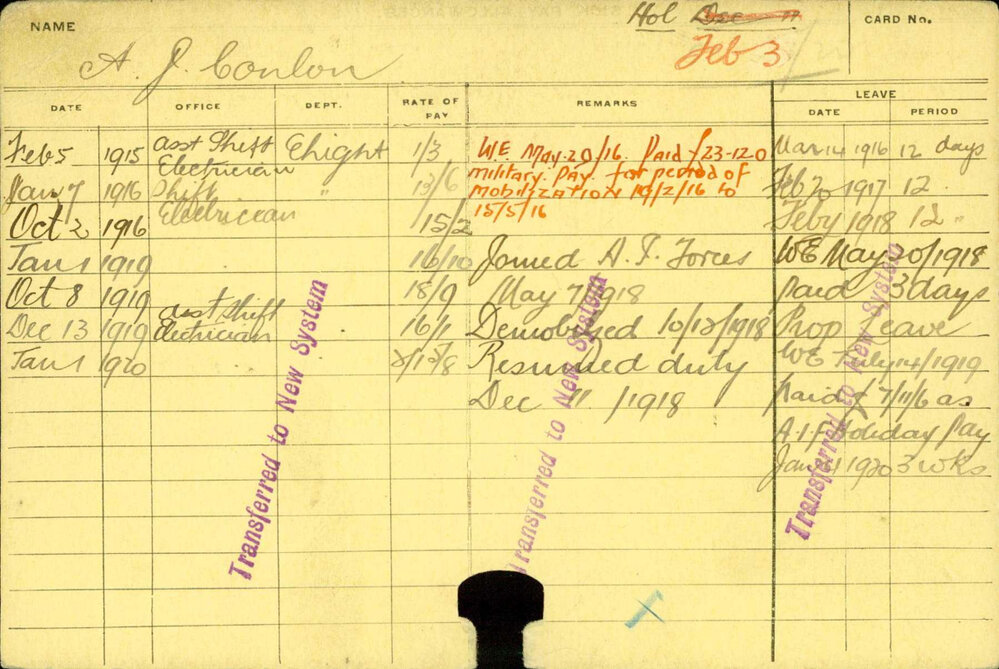 NAME
Hol Dec 11
CARD No.
Feb 3
A. J. Conlon
DATE OFFICE DEPT. RATE OF PAY REMARKS LEAVE
DATE PERIOD
Feb 5 1915 Asst Shift Electrician Elight 1/3
Jan 7 1916 Shift Electrician " 13/6
Oct 2 1916 15/2
Jan 1 1919 16/10
Oct 8 1919 18/9
Dec 13 1919 Asst Shift Electrician 16/1
Jan 1 1920
W.E. May 20/16. Paid £23-12.0
military pay for period of
mobilization 10/2/16 to
15/5/16
Joined A. I. Forces
May 7/1918
Demobilized 10/12/1918
Resumed duty
Dec 11/1918
Mar 14 1916 12 days
Feb 1917 12 "
Feby 1918 12 "
WE May 20/1918
Paid 3 days
Prop Leave
WE July 14/1919
Paid £7/11/6 as
A.I.F Holiday Pay
Jan 1920 3 wks
Transferred to New System
Transferred to New System
Transferred to New System